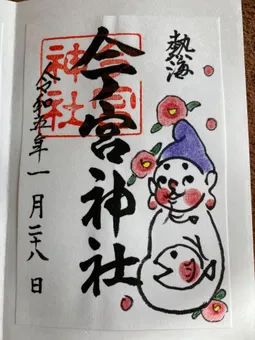 熱海
今宮神社
令和五年一月二十八日
今宮
神社